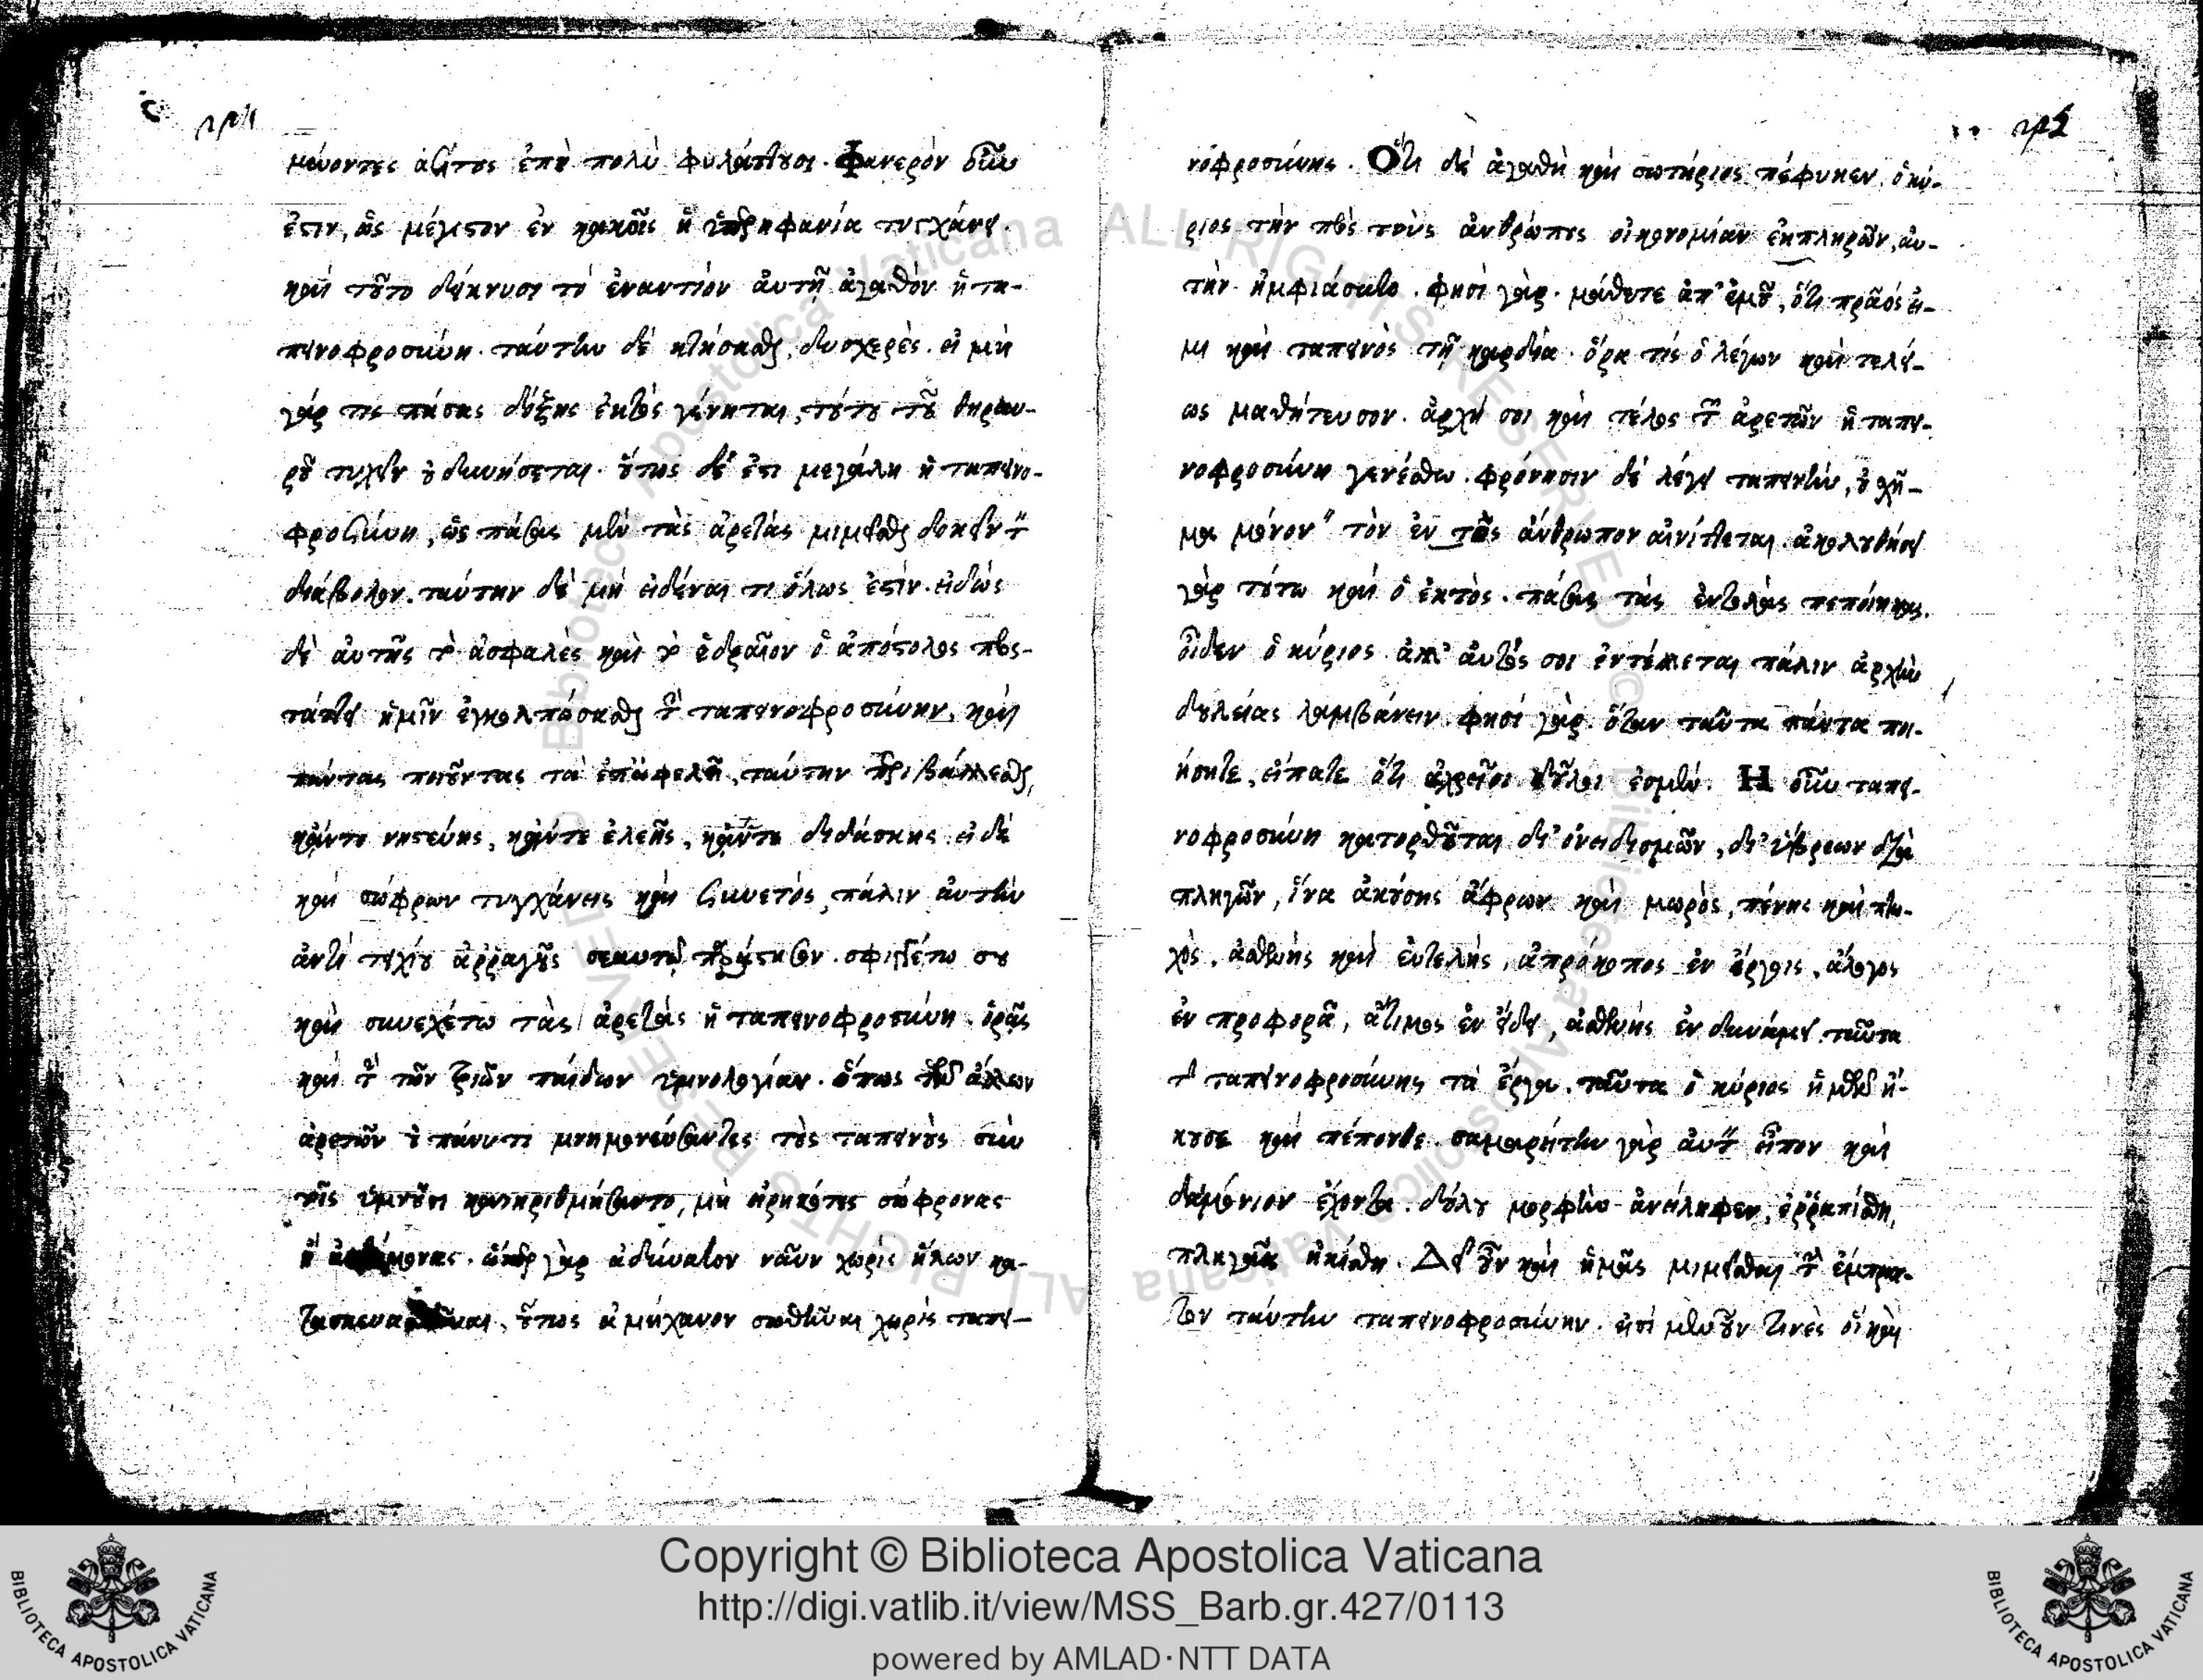 μένοντες ἀσίτους ἐπὶ πολὺ φυλάττουσι. Φανερὸν οὖν
ἐστιν, ὡς μέγιστον ἐν κακοῖς ἡ ὑπερηφανία τυγχάνει.
καὶ τοῦτο δείκνυσι τὸ ἐναντίον αὐτῇ ἀγαθὸν ἡ τα-
πεινοφροσύνη. ταύτην δὲ κτήσασθαι, δυσχερές. εἰ μὴ
γάρ τις πάσης δόξης ἐκτὸς γένηται, τούτου τοῦ θησαυ-
ροῦ τυχεῖν οὐ δυνήσεται. οὕτως δέ ἐστι μεγάλη ἡ ταπεινο-
φροσύνη, ὡς πάσας μὲν τὰς ἀρετὰς μιμεῖσθαι δοκεῖν τὸν
διάβολον. ταύτην δὲ μὴ εἰδέναι τι ὅλως ἐστίν. εἰδὼς
δὲ αὐτῆς τὸ ἀσφαλὲς καὶ τὸ ἑδραῖον ὁ ἀπόστολος προς-
τάττει ἡμῖν ἐγκολπώσασθαι τὴν ταπεινοφροσύνην, καὶ
πάντας ποιοῦντας τὰ ἐπωφελῆ, ταύτην περιβάλλεσθαι,
κἄντε νηστεύῃς, κἄντε ἐλεῇς, κἄντε διδάσκῃς. εἰ δὲ
καὶ σώφρων τυγχάνεις καὶ συνετός, πάλιν αὐτὴν
ἀντὶ τείχους ἀρραγοῦς σεαυτῷ σφιγγέτω σου
καὶ συνεχέτω τὰς ἀρετὰς ἡ ταπεινοφροσύνη. ὁρᾷς
καὶ τὴν τῶν τριῶν παίδων ὑμνολογίαν. ὅπως τῶν ἄλλων
ἀρετῶν οὐ πάνυ τι μνημονεύσαντες τοὺς ταπεινοὺς σὺν
τοῖς ὑμνοῦσι κατηριθμήσαντο, μὴ εἰρηκότες σώφρονας
ἢ ὥσπερ γὰρ ἀδύνατον ναῦν χωρὶς ἥλων κα-
οὕτως ἀμήχανον σωθῆναι χωρὶς ταπει-
νοφροσύνης. Ὅτι δὲ ἀγαθὴ καὶ σωτήριος πέφυκεν, ὁ κύ-
ριος τὴν πρὸς τοὺς ἀνθρώπους οἰκονομίαν ἐκπληρῶν, αὐ-
τὴν ἠμφιάσατο. φησὶ γάρ. μάθετε ἀπ' ἐμοῦ, ὅτι πρᾶός εἰ-
μι καὶ ταπεινὸς τῇ καρδίᾳ. ὅρα τίς ὁ λέγων καὶ τελεί-
ως μαθήτευσον. ἀρχή σοι καὶ τέλος τῶν ἀρετῶν ἡ ταπει-
νοφροσύνη γενέσθω. φρόνησιν δὲ λέγει ταπεινὴν, οὐ σχῆ-
μα μόνον τὸν ἐντὸς ἄνθρωπον αἰνίττεται. ἀκολουθήσει
γὰρ τούτῳ καὶ ὁ ἐκτός. πάσας τὰς ἐντολὰς πεποίηκας.
οἶδεν ὁ κύριος. ἀλλ' αὐτός σοι ἐντέλλεται πάλιν ἀρχὴν
δουλείας λαμβάνειν. φησὶ γάρ. ὅταν ταῦτα πάντα ποι-
ήσητε, εἴπατε ὅτι ἀχρεῖοι δοῦλοι ἐσμέν. Η οὖν ταπει-
νοφροσύνη κατορθοῦται δι' ὀνειδισμῶν, δι' ὕβρεων διὰ
πληγῶν, ἵνα ἀκούσῃς ἄφρων καὶ μωρὸς, πένης καὶ πτω-
χὸς, ἀσθενὴς καὶ εὐτελής, ἀπρόκοπος ἐν ἔργοις, ἄλογος
ἐν προφορᾷ, ἄτιμος ἐν εἴδει, ἀσθενὴς ἐν δυνάμει. ταῦτα
τῆς ταπεινοφροσύνης τὰ ἔργα. ταῦτα ὁ κύριος ἡμῶν ἤ-
κουσε καὶ πέπονθε. σαμαρείτην γὰρ αὐτὸν εἶπον καὶ
δαιμόνιον ἔχοντα. δούλου μορφὴν ἀνείληφεν, ἐρραπίσθη,
πληγαῖς ᾐκίσθη. Δεῖ οὖν καὶ ἡμᾶς μιμεῖσθαι τὴν ἔμπρακ-
τον ταύτην ταπεινοφροσύνην. εἰσὶ μὲν οὖν τινὲς οἳ καὶ
Copyright © Biblioteca Apostolica Vaticana
http://digi.vatlib.it/view/MSS_Barb.gr.427/0113
powered by AMLAD·NTT DATA
BIBLIOTECA APOSTOLICA VATICANA
BIBLIOTECA APOSTOLICA VATICANA